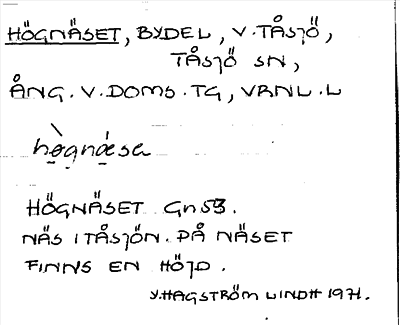 HÖGNÄSET, BYDEL, V. TÅSJÖ,
TÅSJÖ SN,
ÅNG. V. DOMS. TG, VRNL. L
hògnǽsa
HÖGNÄSET Gn 53.
NÄS I TÅSJÖN. PÅ NÄSET
FINNS EN HÖJD.
Y. HAGSTRÖM LINDH 1971.